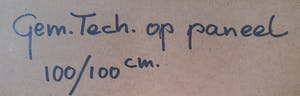 Gem.Tech. op paneel
100/100 cm.